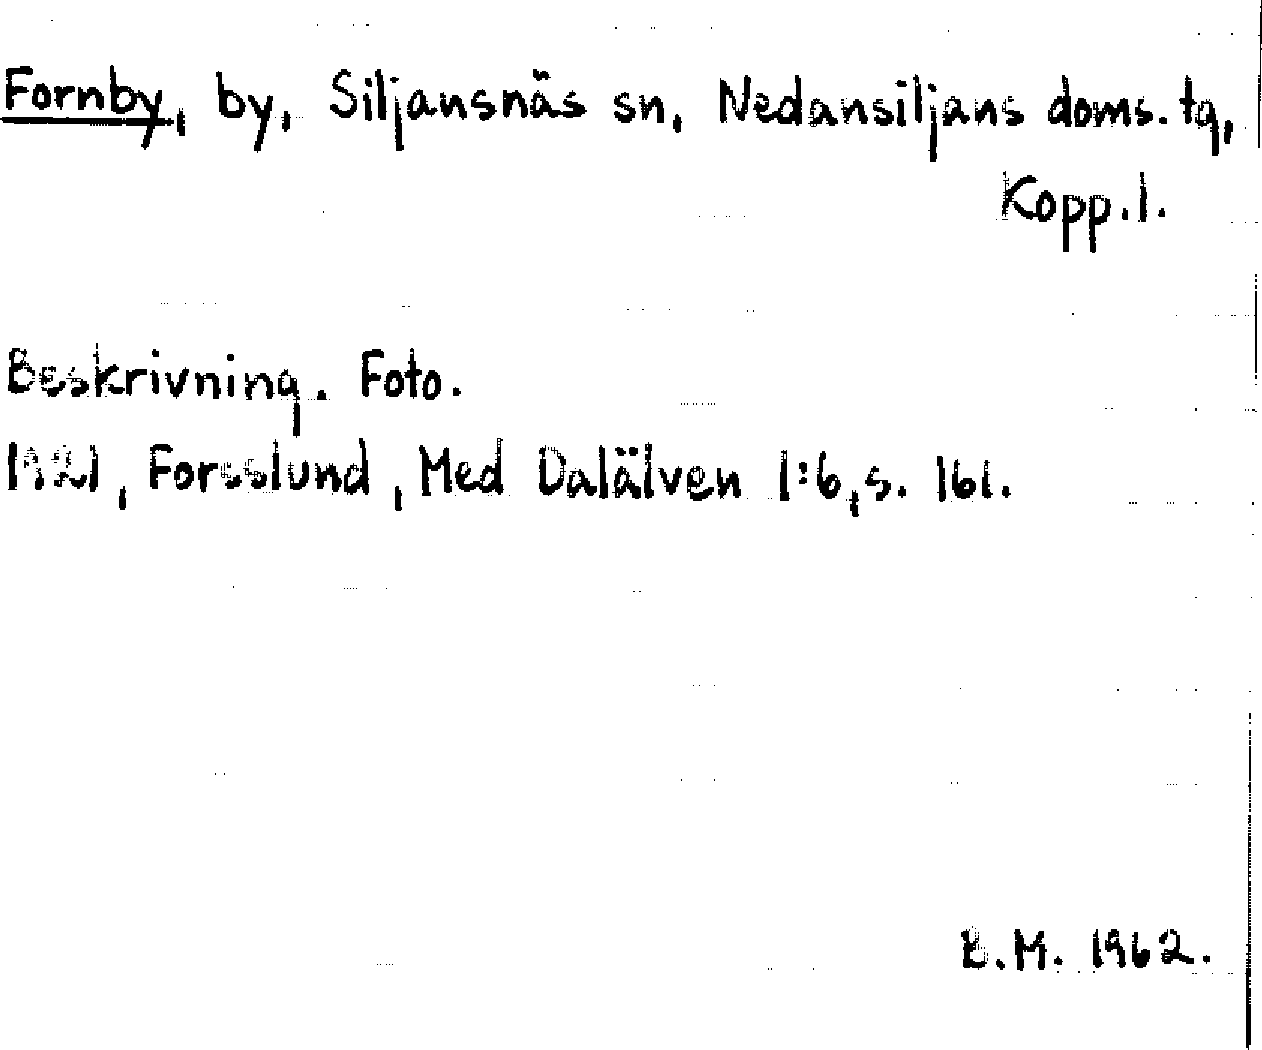 Fornby, by, Siljansnäs sn, Nedansiljans doms. tg,
Kopp. l.
Beskrivning. Foto.
1921, Forsslund, Med Dalälven 1:6, s. 161.
B.M. 1962.